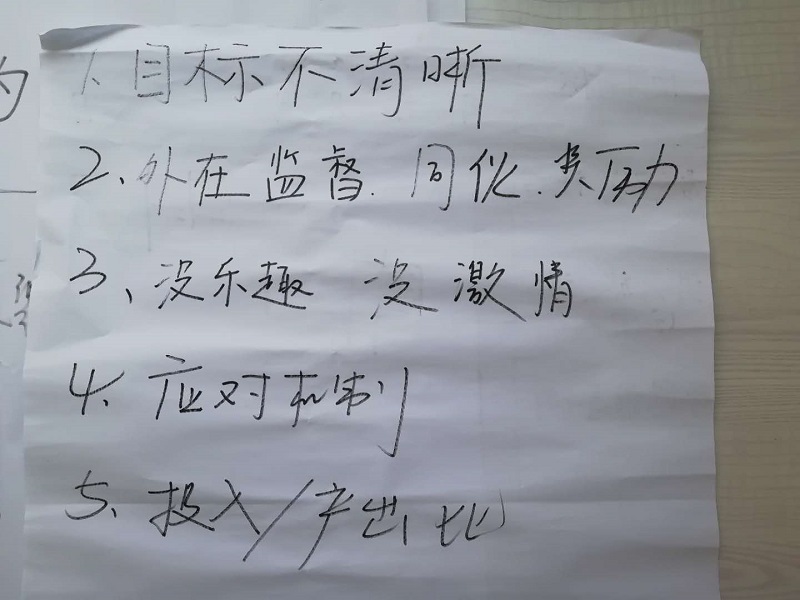 的
1. 目标不清晰
2、外在监督.同伙.类互动
3、没乐趣 没激情
4. 应对机制
5、投入/产出比